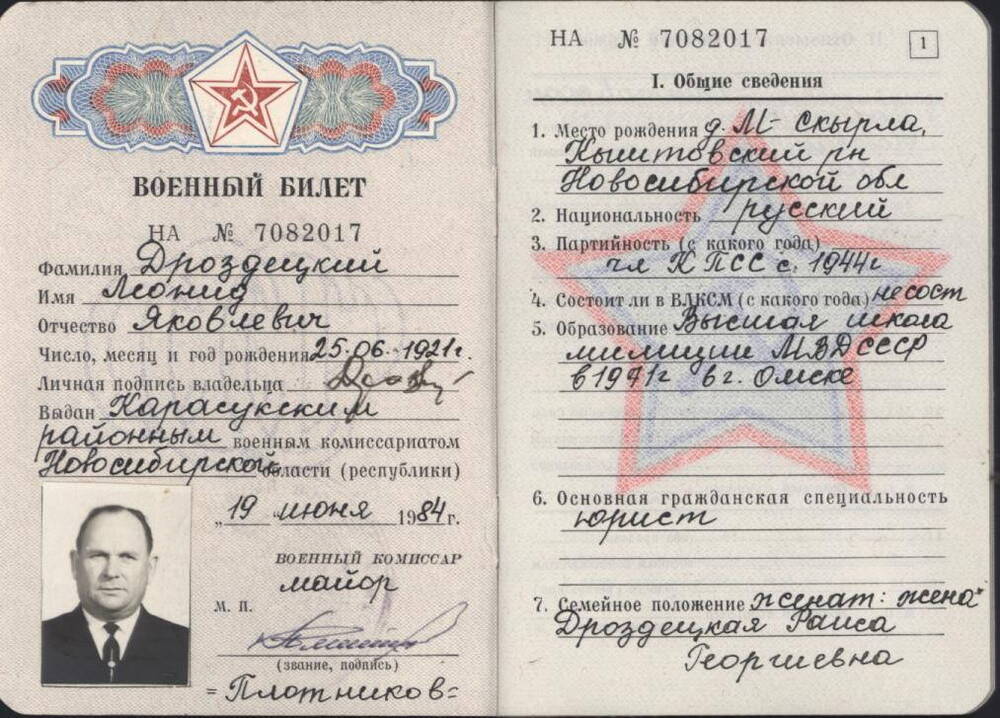 ВОЕННЫЙ БИЛЕТ
НА № 7082017
Фамилия Дроздецкий
Имя Леонид
Отчество Яковлевич
Число, месяц и год рождения 25.06.1921г.
Личная подпись владельца
Выдан Карасукским
районным военным комиссариатом
Новосибирской области (республики)
„19 июня 1984 г.
ВОЕННЫЙ КОМИССАР
майор
М. П.
(звание, подпись)
=Плотников=
НА № 7082017
1
I. Общие сведения
1. Место рождения д. М-Скырла,
Кыштовский рн
Новосибирской обл
2. Национальность русский
3. Партийность (с какого года)
чл КПСС с. 1944г
4. Состоит ли в ВЛКСМ (с какого года) не сост
5. Образование Высшая школа
милиции МВД СССР
в 1971г в г. Омске
6. Основная гражданская специальность
юрист
7. Семейное положение женат: жена
Дроздецкая Раиса
Георгиевна